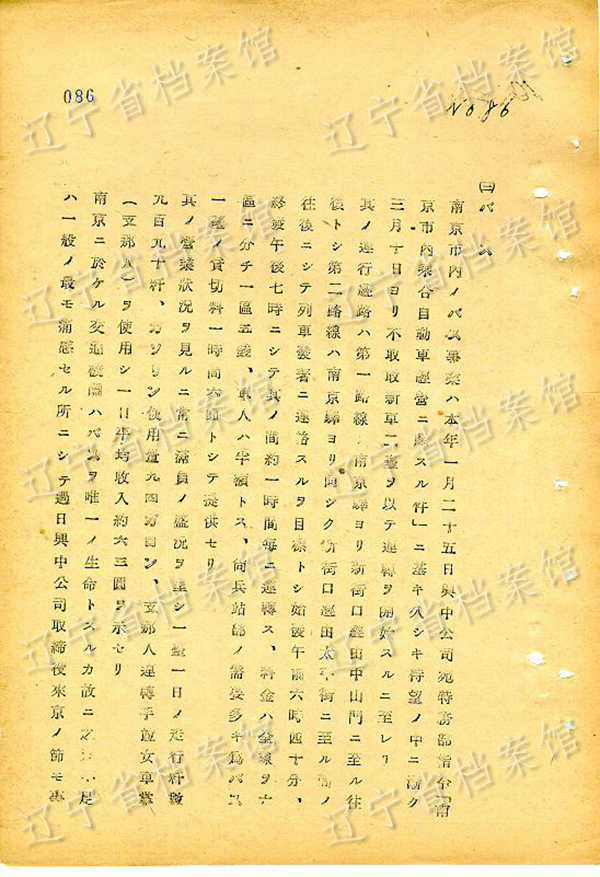 086
No 86
㈢バス
南京市內ノバス事業ハ本年一月二十五日興中公司宛特務部指令「南
京市內乘合自動車經營ニ關スル件」ニ基キ久シキ待望ノ中ニ漸ク
三月十日ヨリ不取敢新車二臺ヲ以テ運轉ヲ開始スルニ至レリ
其ノ運行經路ハ第一路線ハ南京驛ヨリ新街口經由中山門ニ至ル往
復トシ第二路線ハ南京驛ヨリ同ジク新街口經由太平街ニ至ル間ノ
往復ニシテ列車發著ニ連絡スルヲ目標トシ始發午前六時四十分、
終發午後七時ニシテ其ノ間約一時間每ニ運轉ス、料金ハ全線ヲ
區ニ分チ一區五錢、軍人ハ半額トス、尙兵站部ノ需要多キ爲バス
一臺ノ貸切料一時間六圓トシテ提供セリ
其ノ營業狀況ヲ見ルニ常ニ滿員ノ盛況ヲ呈シ一臺一日ノ走行粁數
九百九十粁、ガソリン使用量九四ガロン、支那人運轉手竝女車掌
(支那人)ヲ使用シ一日平均收入約六三圓ヲ示セリ
南京ニ於ケル交通機關ハバスヲ唯一ノ生命トスルカ故ニ不足
ハ一般ノ最モ痛感セル所ニシテ過日興中公司取締役來京ノ節モ
辽宁省档案馆
辽宁省档案馆
辽宁省档案馆
辽宁省档案馆
辽宁省档案馆
辽宁省档案馆
辽宁省档案馆
辽宁省档案馆
辽宁省档案馆
辽宁省档案馆